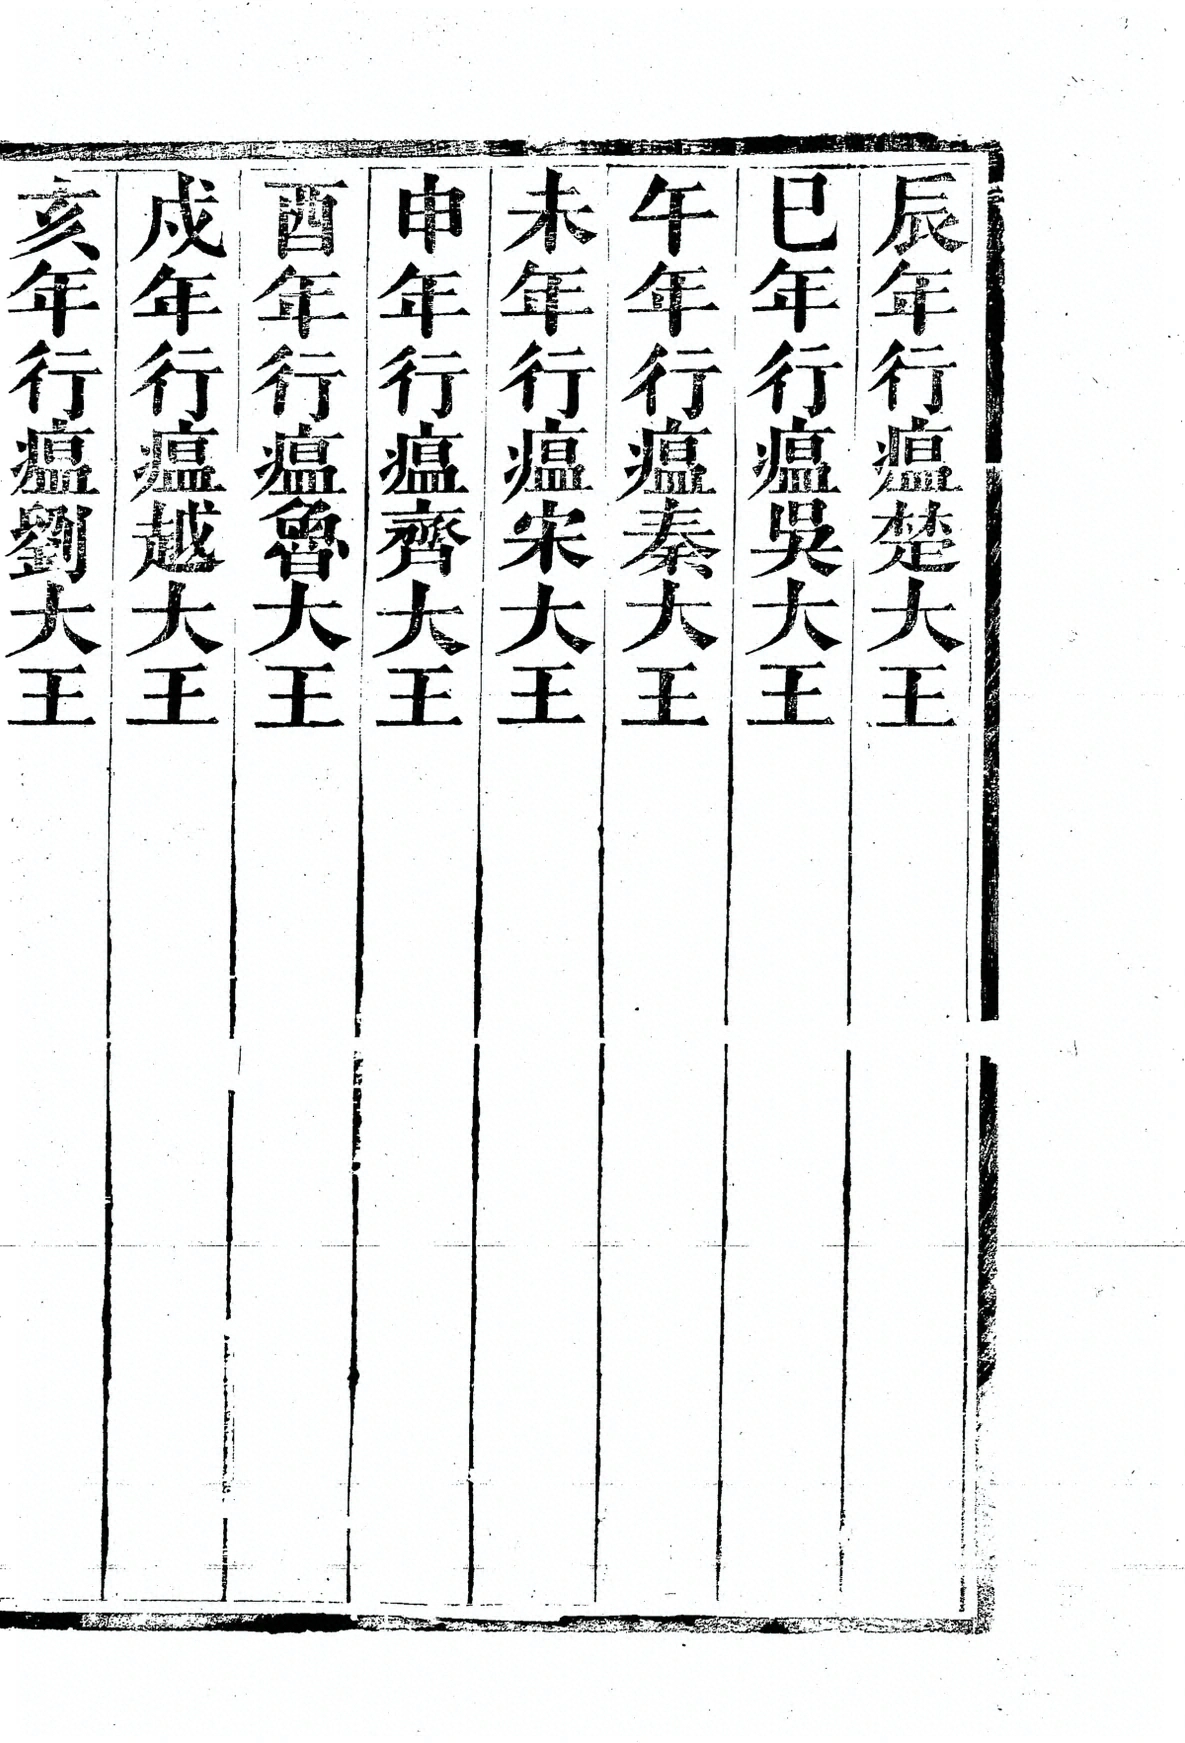 辰年行瘟楚大王
巳年行瘟吳大王
午年行瘟秦大王
未年行瘟宋大王
申年行瘟齊大王
酉年行瘟魯大王
戌年行瘟越大王
亥年行瘟劉大王